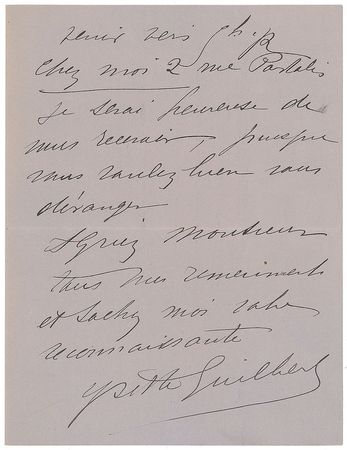 venir vers 5h. 1/2
chez moi 2 rue Portalis
je serai heureuse de
vous recevoir, puisque
vous voulez bien vous
déranger
Agréez Monsieur
tous mes remerciements
et Sachez moi votre
reconnaissante
Yvette Guilbert